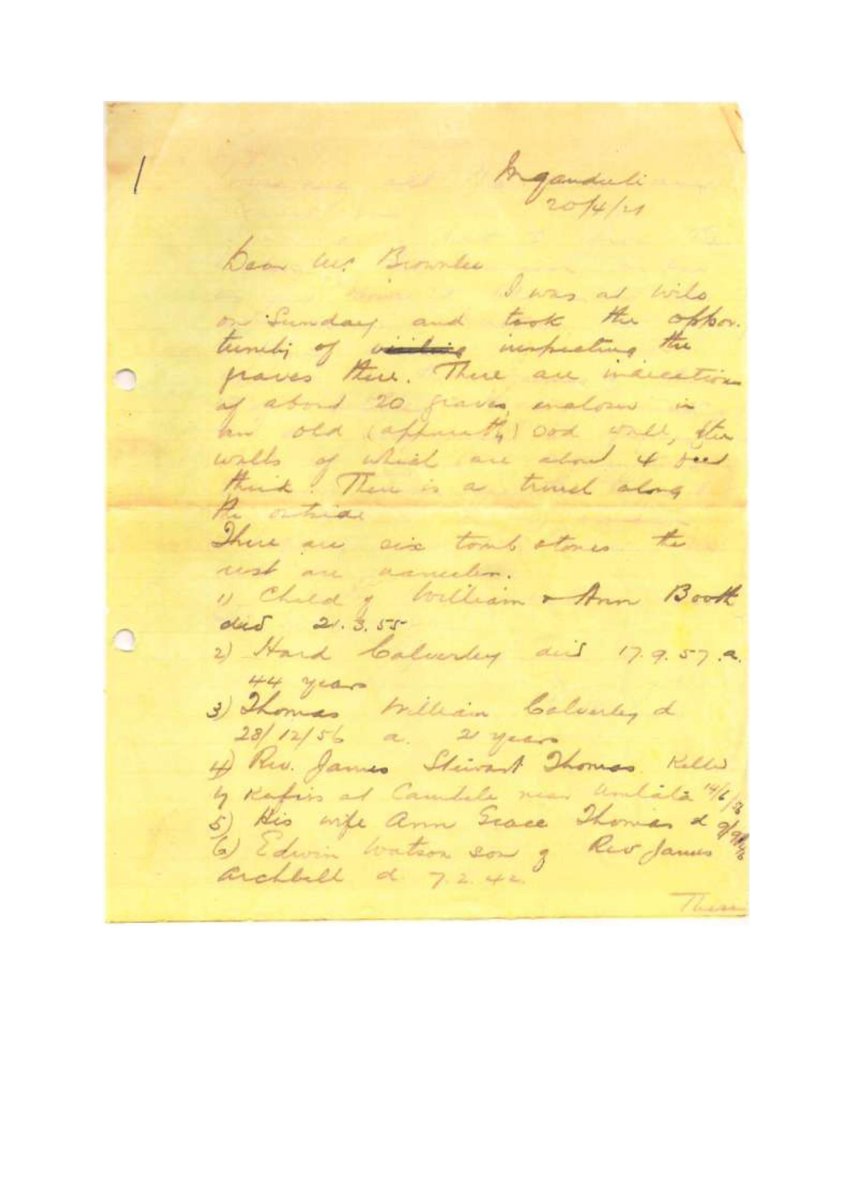 1
Mqanduli
20/4/21
Dear Mr. Brownlee
I was at Wilo
on Sunday and took the oppor-
tunity of visiting inspecting the
graves there. There are indications
of about 20 graves, enclosed in
an old (apparently) sod wall, the
walls of which are about 4 feet
thick. There is a trench along
the outside
There are six tomb stones the
rest are
1) Child of William & Ann Booth
died 21.3.55
2) Calverley died 17.9.57. a.
44 years
3) Thomas William Calverley d
28/12/56 a. 21 years
4) Rev. James Stewart Thomas. Killed
by Kafirs at near Umtata
5) His wife Ann Grace Thomas d
6) Edwin Watson son of Rev James
Archbell d. 7.2.42
These